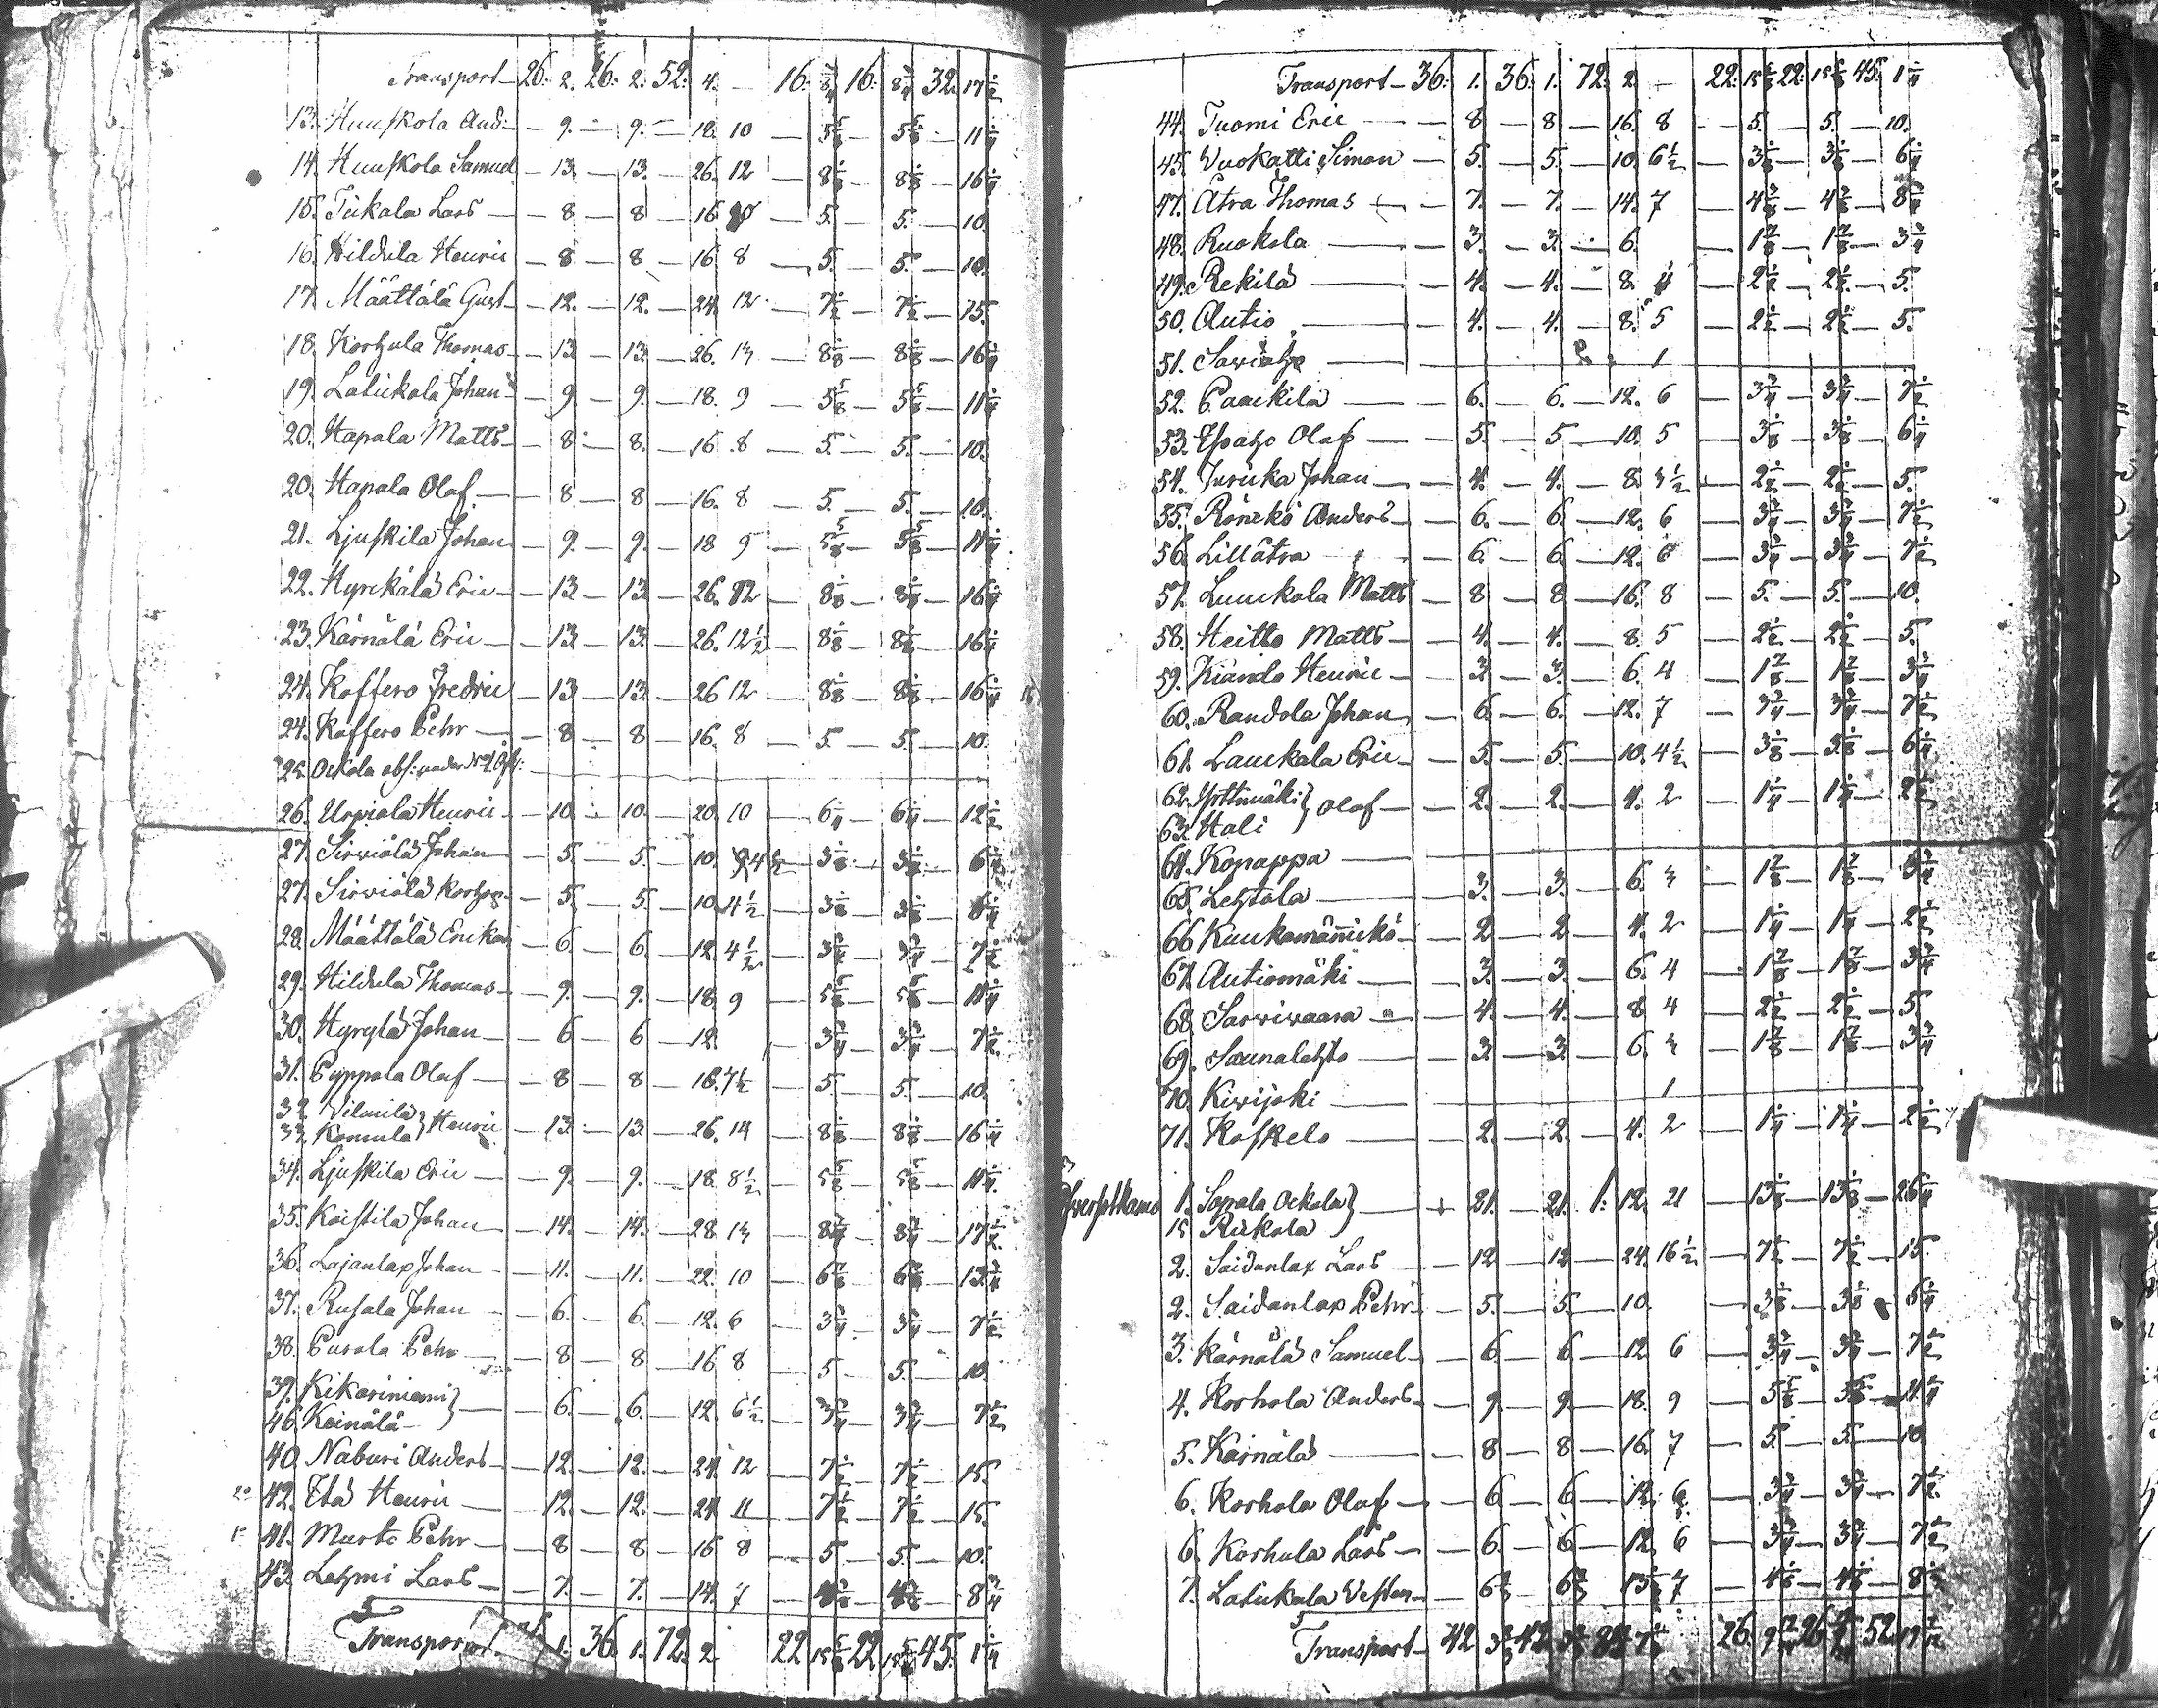 Transport 26. 2. 26. 2. 52. 4. — 16. 8 3/4 16. 8 3/4 32. 17 1/2
13. Huuskola And: — 9. — 9. — 18. 10 — 5 5/8 — 5 5/8 — 11 1/4
14. Huuskola Samuel — 13. — 13. — 26. 12 — 8 1/8 — 8 1/8 — 16 1/4
15. Tikala Lars — 8 — 8 — 16 — 5. — 5. — 10.
16. Hildula Henric — 8 — 8 — 16 8 — 5. — 5. — 10.
17. Määttälä Gust — 12. — 12. — 24. 12 — 7 1/2 — 7 1/2 — 15.
18. Korhula Thomas — 13. — 13. — 26. 13 — 8 1/8 — 8 1/8 — 16 1/4
19. Latukala Johan — 9. — 9. — 18. 9 — 5 5/8 — 5 5/8 — 11 1/4
20. Hapala Matts — 8 — 8. — 16 8 — 5. — 5. — 10.
20. Hapala Olof — 8 — 8 — 16. 8 — 5. — 5. — 10.
21. Ljuskila Johan — 9. — 9. — 18 9 — 5 5/8 — 5 5/8 — 11 1/4
22. Hyrckälä Eric — 13. — 13. — 26. 12 — 8 1/8 — 8 1/8 — 16 1/4
23. Kärnälä Eric — 13. — 13. — 26. 12 1/2 — 8 1/8 — 8 1/8 — 16 1/4
24. Koffero Fredric — 13 — 13 — 26 12 — 8 1/8 — 8 1/8 — 16 1/4
24. Koffero Pehr — 8 — 8 — 16. 8 — 5. — 5. — 10.
25. Ockola obs: under No 1 Öfv:
26. Urpiala Henric — 10. — 10. — 20. 10 — 6 1/4 — 6 1/4 — 12 1/2
27. Sirviölä Johan — 5. — 5. — 10. 4 1/2 — 3 1/8 — 3 1/8 — 6 1/4
27. Sirviölä — 5. — 5. — 10. 4 1/2 — 3 1/8 — 3 1/8 — 6 1/4
28. Määttälä — 6 — 6. — 12. 4 1/2 — 3 3/4 — 3 3/4 — 7 1/2
29. Hildula Thomas — 9. — 9. — 18. 9 — 5 5/8 — 5 5/8 — 11 1/4
30. Hyrylä Johan — 6 — 6 — 12. — 3 3/4 — 3 3/4 — 7 1/2
31. Pyppola Olof — 8 — 8 — 16. 7 1/2 — 5. — 5. — 10.
32. Vilmilä
33. Komula } Henric — 13. — 13. — 26. 14 — 8 1/8 — 8 1/8 — 16 1/4
34. Ljuskila Eric — 9. — 9. — 18. 8 1/2 — 5 5/8 — 5 5/8 — 11 1/4
35. Koistila Johan — 14. — 14. — 28. 13 — 8 3/4 — 8 3/4 — 17 1/2
36. Lajanlax Johan — 11. — 11. — 22. 10 — 6 7/8 — 6 7/8 — 13 3/4
37. Rusala Johan — 6. — 6. — 12. 6 — 3 3/4 — 3 3/4 — 7 1/2
38. Purola Pehr — 8 — 8 — 16 8 — 5 — 5. — 10.
39. Kikariniemi
46. Keinälä } — 6. — 6. — 12. 6 1/2 — 3 3/4 — 3 3/4 — 7 1/2
40. Naburi Anders — 12. — 12. — 24. 12 — 7 1/2 — 7 1/2 — 15.
42. Henric — 12. — 12. — 24. 11 — 7 1/2 — 7 1/2 — 15.
41. Murto Pehr — 8 — 8 — 16 8 — 5 — 5. — 10.
43. Lehmi Lars — 7. — 7. — 14. 7 — 4 3/8 — 4 3/8 — 8 3/4
Transport 1. 36. 1. 72. 2. 22 15 5/8 22. 15 5/8 45. 1 1/4
Transport — 36. 1. 36. 1. 72. 2. — 22. 15 5/8 22. 15 5/8 45. 1 1/4
44. Tuomi Eric — 8 — 8 — 16. 8 — 5. — 5. — 10.
45. Wuokatti Simon — 5. — 5. — 10. 6 1/2 — 3 1/8 — 3 1/8 — 6 1/4
47. Atra Thomas — 7. — 7. — 14. 7 — 4 3/8 — 4 3/8 — 8 3/4
48. Ruokola — 3. — 3. — 6. — 1 7/8 — 1 7/8 — 3 3/4
49. Rekilä — 4. — 4. — 8. 4 — 2 1/2 — 2 1/2 — 5.
50. Autio — 4. — 4. — 8. 5 — 2 1/2 — 2 1/2 — 5.
51. — 1
52. Paackila — 6. — 6. — 12. 6 — 3 3/4 — 3 3/4 — 7 1/2
53. Olof — 5. — 5 — 10. 5 — 3 1/8 — 3 1/8 — 6 1/4
54. Juricka Johan — 4. — 4. — 8. 3 1/2 — 2 1/2 — 2 1/2 — 5.
55. Ränckö Anders — 6. — 6. — 12. 6 — 3 3/4 — 3 3/4 — 7 1/2
56. Lillåtra — 6. — 6. — 12. 6 — 3 3/4 — 3 3/4 — 7 1/2
57. Luuckola Matts — 8 — 8 — 16. 8 — 5. — 5. — 10.
58. Heitto Matts — 4. — 4. — 8. 5 — 2 1/2 — 2 1/2 — 5.
59. Kiando Henric — 3. — 3. — 6. 4 — 1 7/8 — 1 7/8 — 3 3/4
60. Randola Johan — 6. — 6. — 12. 7 — 3 3/4 — 3 3/4 — 7 1/2
61. Lauckala Eric — 5. — 5. — 10. 4 1/2 — 3 1/8 — 3 1/8 — 6 1/4
62. } Olof — 2. — 2. — 4. 2 — 1 1/4 — 1 1/4 — 2 1/2
63. Hali
64. Konappa
65. Lehtola — 3. — 3. — 6. 3 — 1 7/8 — 1 7/8 — 3 3/4
66. Kuukamännickö — 2 — 2 — 4. 2 — 1 1/4 — 1 1/4 — 2 1/2
67. Autiomäki — 3. — 3. — 6. 4 — 1 7/8 — 1 7/8 — 3 3/4
68. Sarviwaara — 4. — 4. — 8 4 — 2 1/2 — 2 1/2 — 5
69. Saunalehto — 3. — 3. — 6. 3 — 1 7/8 — 1 7/8 — 3 3/4
70. Kivijoki — 1
71. Koskelo — 2. — 2. — 4. 2 — 1 1/4 — 1 1/4 — 2 1/2
Öfversotkamo 1. Sopala Ockola } — 21. — 21. 1. 12. 21 — 13 1/8 — 13 1/8 — 26 1/4
15 Riikola
2. Saidanlax Lars — 12 — 12 — 24. 16 1/2 — 7 1/2 — 7 1/2 — 15.
2. Saidanlax Pehr — 5. — 5. — 10. — 3 1/8 — 3 1/8 — 6 1/4
3. Kärnälä Samuel — 6. — 6. — 12. 6 — 3 3/4 — 3 3/4 — 7 1/2
4. Korhola Anders — 9. — 9. — 18. 9 — 5 5/8 — 5 5/8 — 11 1/4
5. Kärnälä — 8 — 8 — 16. 7 — 5. — 5. — 10
6. Korhola Olof — 6. — 6. — 12. 6 — 3 3/4 — 3 3/4 — 7 1/2
6. Korhula Lars — 6. — 6 — 12. 6 — 3 3/4 — 3 3/4 — 7 1/2
7. Latukala
Transport — 42